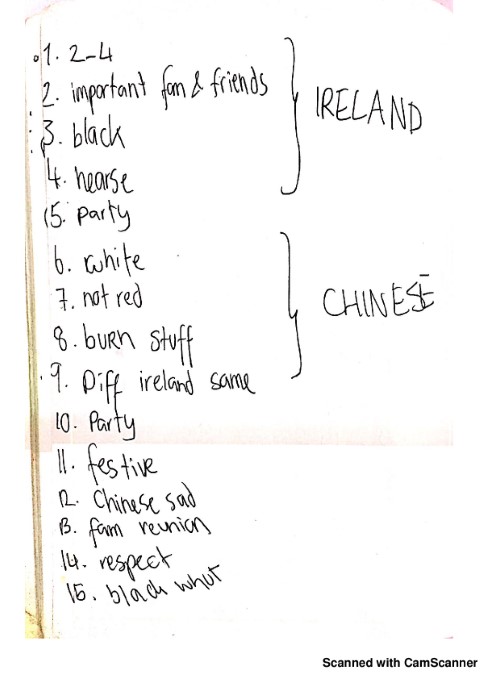 1. 2-4
2. important fam & friends
3. black
4. hearse
IRELAND
5. party
6. white
7. not red
8. burn stuff
9. Diff ireland same
CHINESE
10. Party
11. festive
12. Chinese sad
13. fam reunion
14. respect
15. black
Scanned with CamScanner